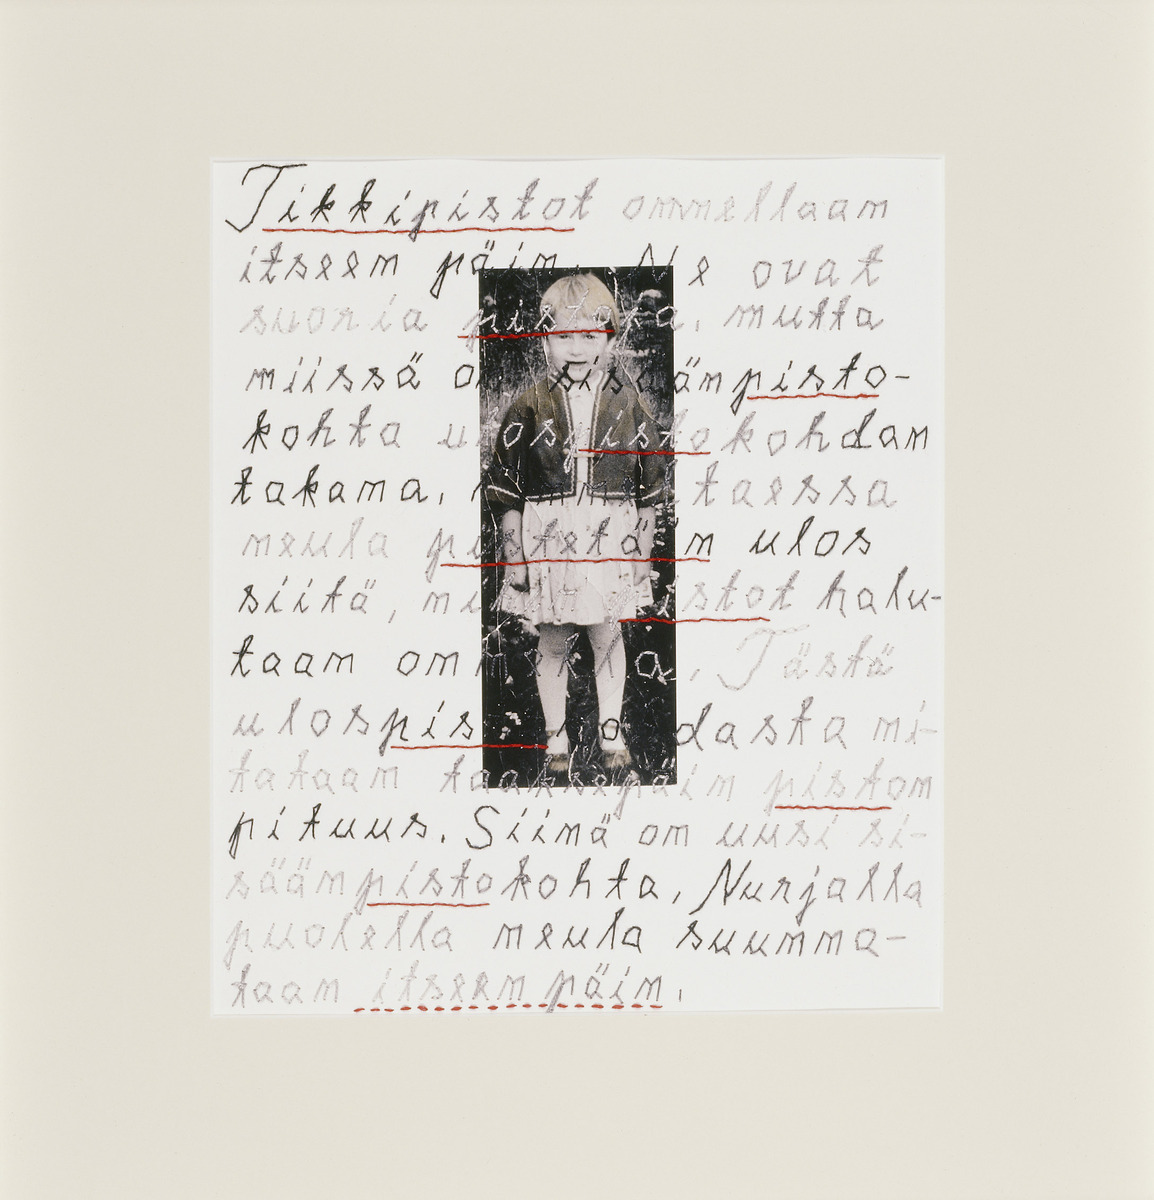 Tikkipistot ommellaan
itseen päin. Ne ovat
suoria pistoja, mutta
niissä on sisäänpisto-
kohta ulospistokohdan
takana. Ommeltaessa
neula pistetään ulos
siitä, mihin pistot halu-
taan ommella. Tästä
ulospistokohdasta mi-
tataan taaksepäin piston
pituus. Siinä on uusi si-
säänpistokohta. Nurjalla
puolella neula suunna-
taan itseen päin.